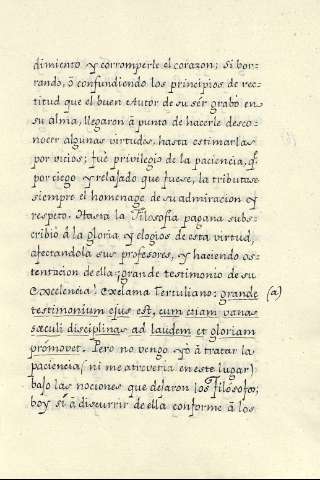 dimiento y corromperle el corazon; si bor=
rando, ò confundiendo los principios de rec=
titud que el buen Autor de su sér grabó en
su alma, llegaron á punto de hacerle desco=
nocer algunas virtudes, hasta estimarlas
por vicios; fué privilegio de la paciencia, q.e
por ciego y relajado que fuese, la tributase
siempre el homenage de su admiracion y
respeto. Hasta la Filosofia pagana subs=
cribió á la gloria y elogios de esta virtud,
afectandola sus profesores, y haciendo os=
tentacion de ella: ¡grande testimonio de su
excelencia! exclama Tertuliano: grande (a)
testimonium ejus est, cum etiam vanas
sæculi disciplinas ad laudem et gloriam
prómovet. Pero no vengo yò à tratar la
paciencia, ni me atreveria en este lugar)
bajo las nociones que dejaron los Filosofos;
hoy sí à discurrir de ella conforme à los